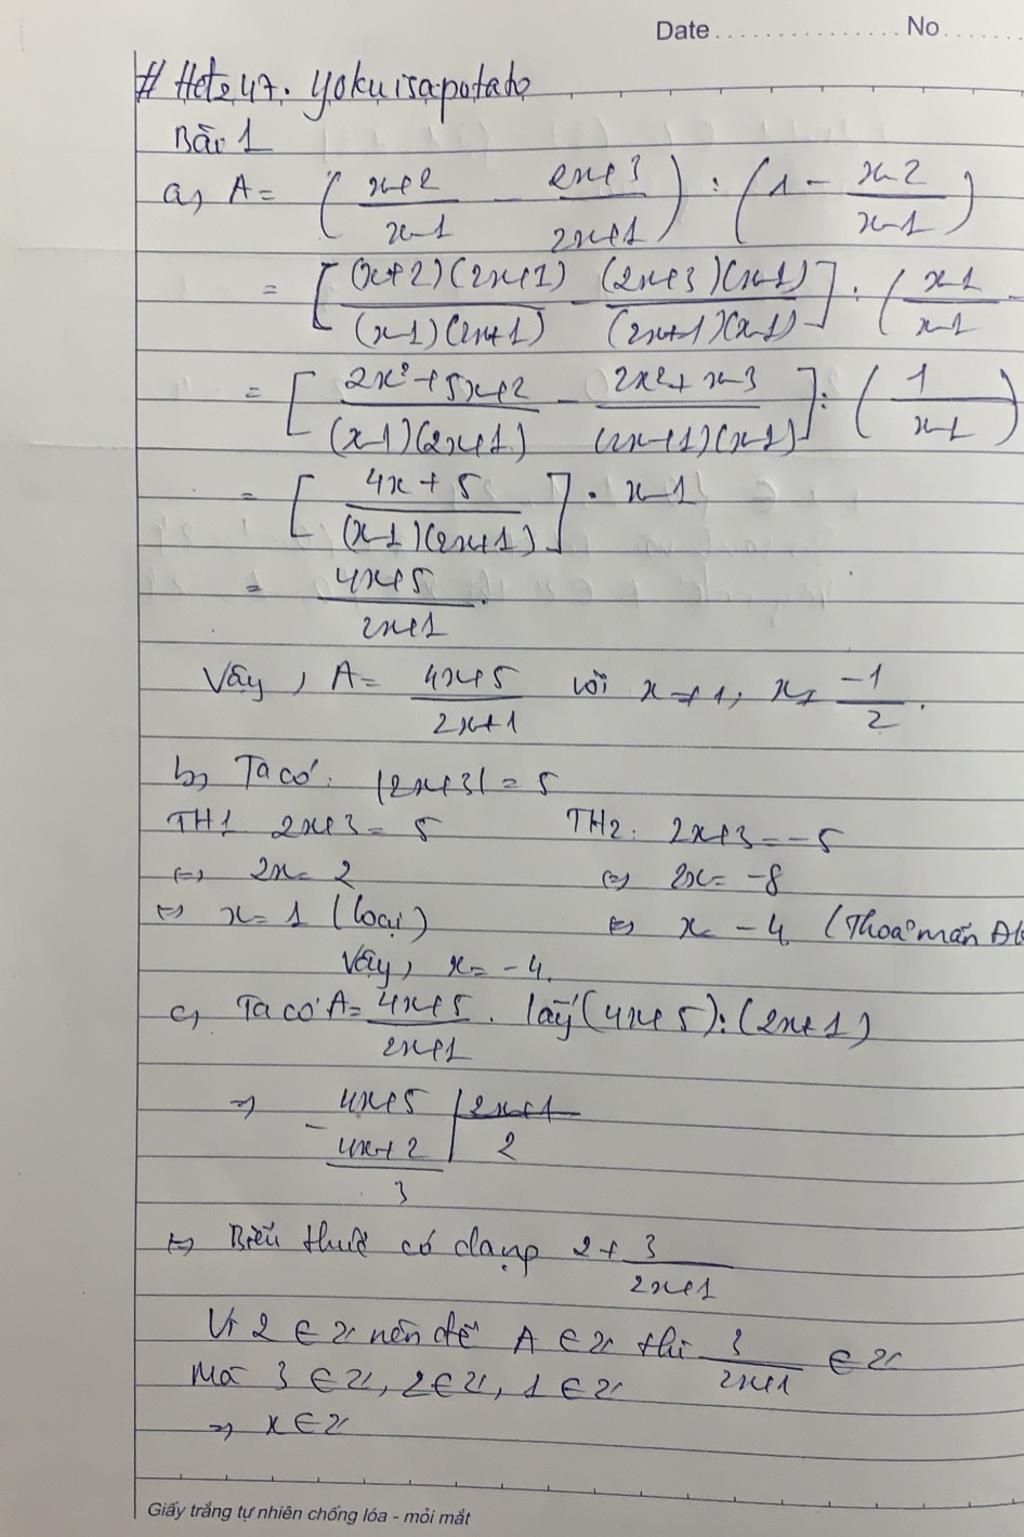 Date................ No.......
# Hđ247. yokuisapotato
Bài 1
a, A = ( x+2 / x-1 - 2x+3 / 2x+1 ) : ( 1 - x-2 / x-1 )
= [ (x+2)(2x+1) / (x-1)(2x+1) - (2x+3)(x-1) / (2x+1)(x-1) ] : ( x-1 / x-1 -
= [ 2x²+5x+2 / (x-1)(2x+1) - 2x²+x-3 / (2x+1)(x-1) ] : ( 1 / x-1 )
= [ 4x+5 / (x-1)(2x+1) ] . x-1
= 4x+5 / 2x+1 .
Vậy, A = 4x+5 / 2x+1 với x ≠ 1, x ≠ -1 / 2 .
b, Ta có: |2x+3| = 5
TH1. 2x+3 = 5 TH2. 2x+3 = -5
⇔ 2x = 2 ⇔ 2x = -8
⇔ x = 1 (loại) ⇔ x = -4 (Thoả mãn Đk
Vậy, x = -4.
c, Ta có A = 4x+5 / 2x+1 . lấy (4x+5) : (2x+1)
⇒ 4x+5 | 2x+1
- 4x+2 | 2
3
⇔ Biểu thức có dạng 2 + 3 / 2x+1
Vì 2 ∈ Z nên để A ∈ Z thì 3 / 2x+1 ∈ Z
Mà 3 ∈ Z, 2 ∈ Z, 1 ∈ Z
⇒ x ∈ Z
Giấy trắng tự nhiên chống lóa - mỏi mắt